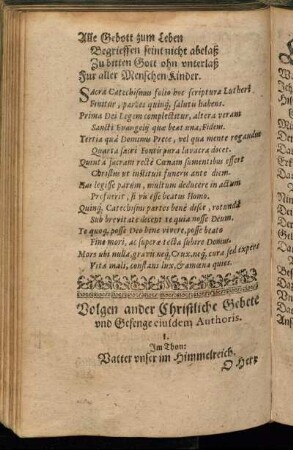 Alle Gebott zum Leben
Begrieffen seint nicht abelaß
Zu bitten Gott ohn vnterlaß
Fur aller Menschen Kinder.
Sacra Catechismus folio hoc scriptura Lutheri
Finitur, partes quinq; salutis habens.
Prima Dei Legem complectitur, altera veram
Sancti Evangelij quæ beat una, Fidem.
Tertia quâ Dominus Prece, vel qua mente rogandus
Quarta sacri Fontis pura lavacra docet.
Quinta sacram rectè Cœnam sumentibus offert
Christus ut instituit funera ante diem.
Has legisse parùm, multum deducere in actum
Profuerit, si vis esse beatus homo.
Quinq; Catechismi partes benè disce, rotundâ
Sub brevitate docent te quia nosse Deum.
Te quoq; posse Deo bene vivere, posse beato
Fine mori, ac supera tecta subire Domus.
Mors ubi nulla, gravis neq; Crux, neq; cura sed expers
Vita mali, constans lux, & amœna quies.
Volgen ander Christliche Gebete
vnd Gesenge eiusdem Authoris.
1.
Im Thon:
Vatter vnser im Himmelreich.
O Herr